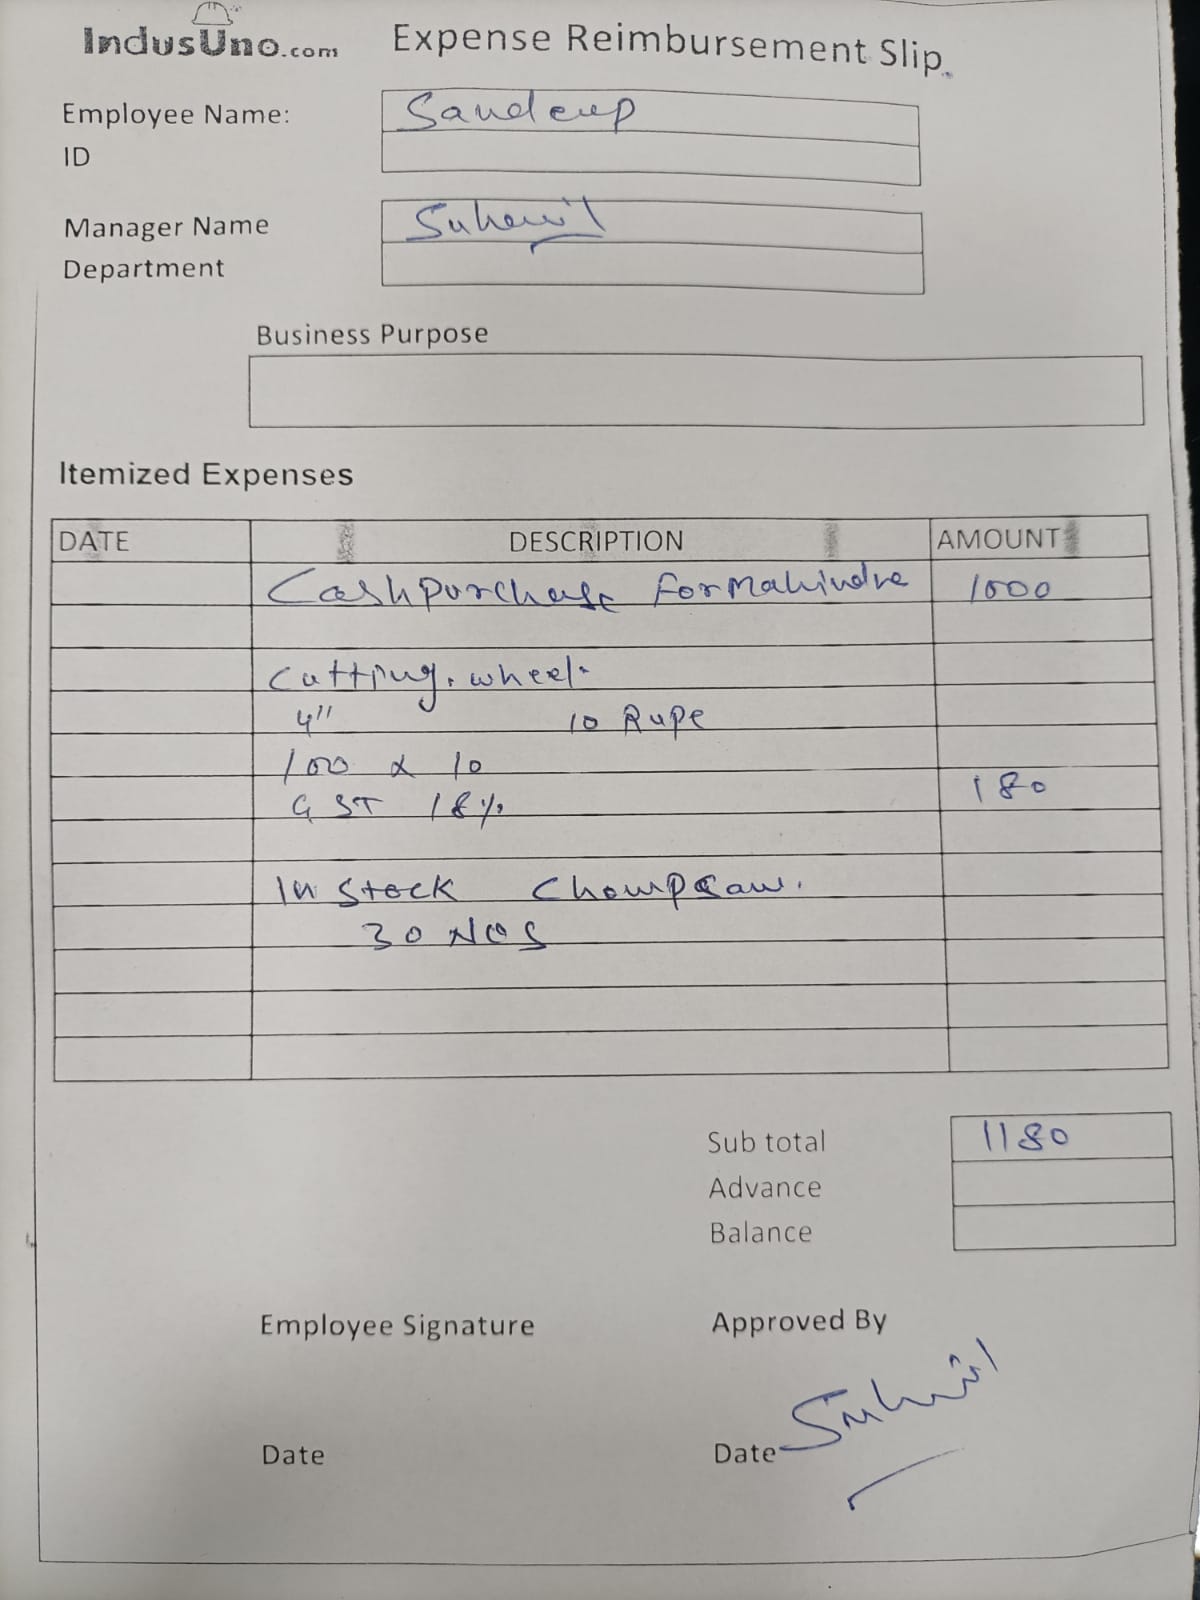 IndusUno.com Expense Reimbursement Slip
Employee Name: Sandeep
ID
Manager Name Suhail
Department
Business Purpose
Itemized Expenses
DATE DESCRIPTION AMOUNT
Cash Purchase For Mahindra 1000
Cutting wheel
4" 10 Rupe
100 x 10
GST 18% 180
In Stock Chompsaw.
30 NOS
Sub total 1180
Advance
Balance
Employee Signature Approved By
Suhail
Date Date